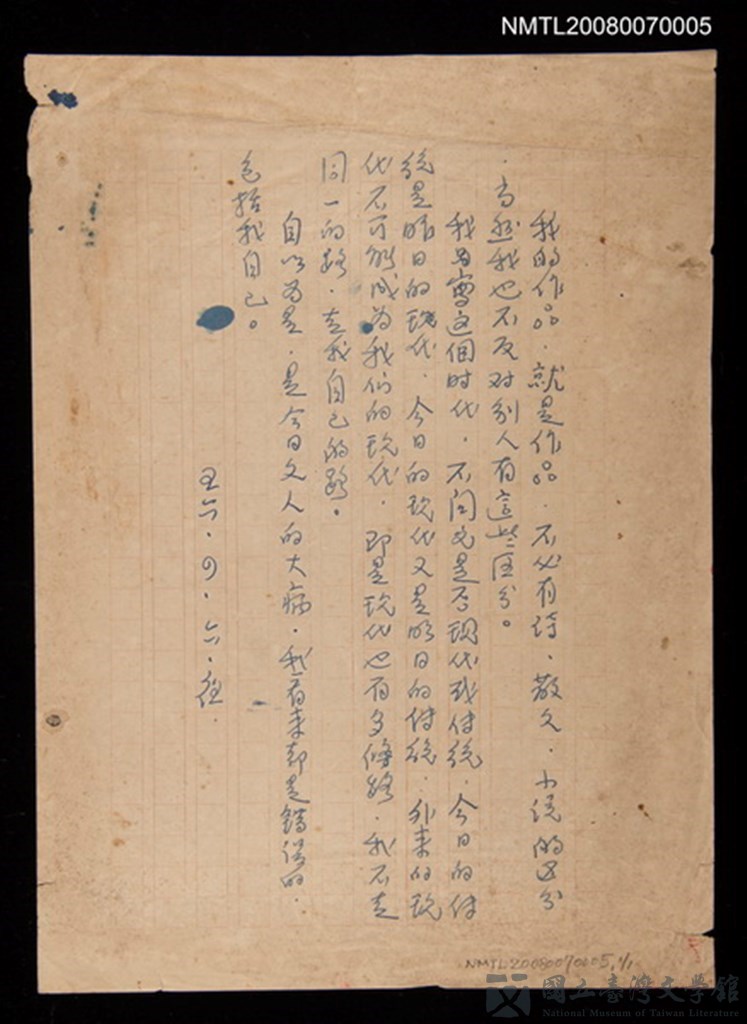 NMTL20080070005
我的作品．就是作品．不必有诗．散文．小说的区分
．当然我也不反对别人有這些区分。
我只寫这個时代．不问它是否现代或传统．今日的传
统是昨日的现代．今日的现代又是明日的传统．外来的现
代不可能成为我们的现代．即是现代也有多條路．我不走
同一的路．走我自己的路。
自以为是．是今日文人的大病．我看来都是错误的．
包括我自己。
六．九．六．
NMTL20080070005,1/1
國立臺灣文學館
National Museum of Taiwan Literature